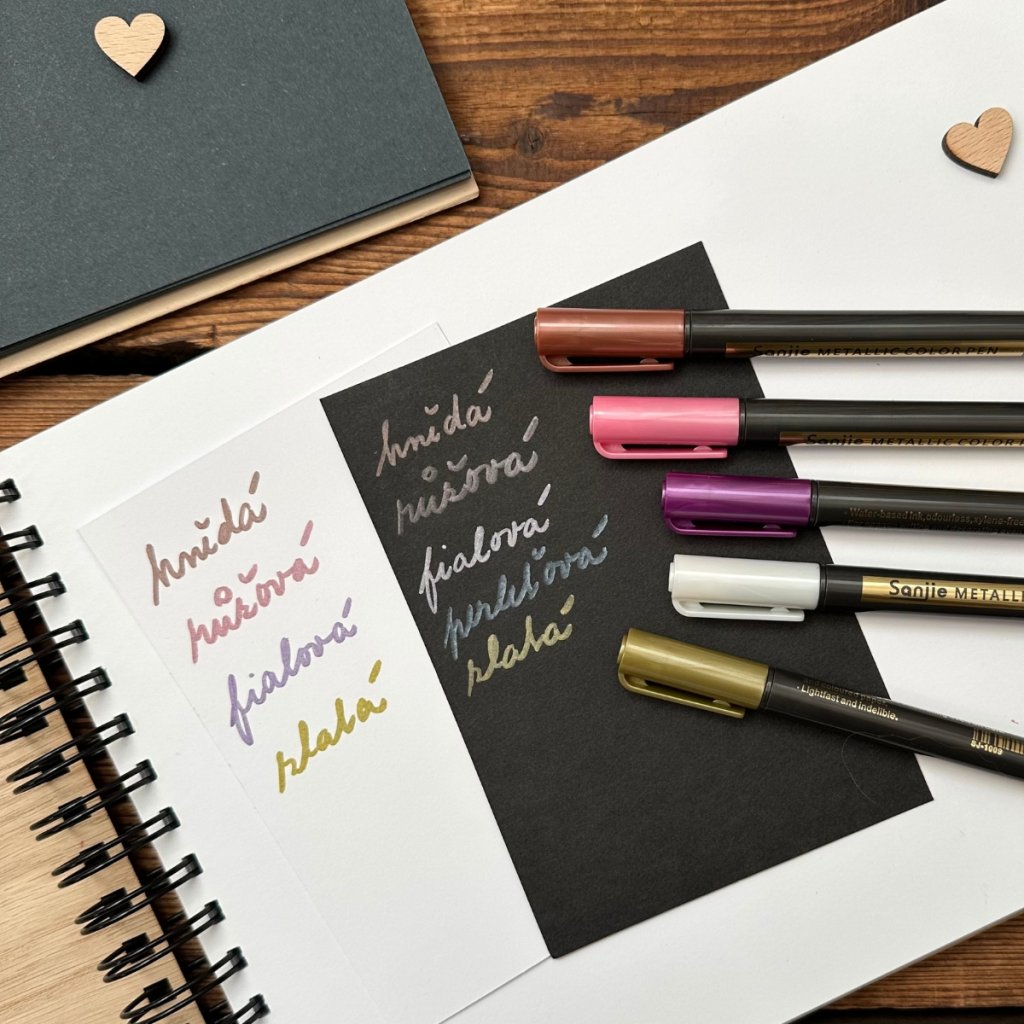 hnědá
růžová
fialová
zlatá
hnědá
růžová
fialová
perleťová
zlatá
Sanjie METALLIC COLOR PEN
Sanjie METALLIC COLOR
Water-based ink, odourless, xylene-free
Sanjie METALLI
coloured paper.
· Lightfast and indelible.
SJ-1009